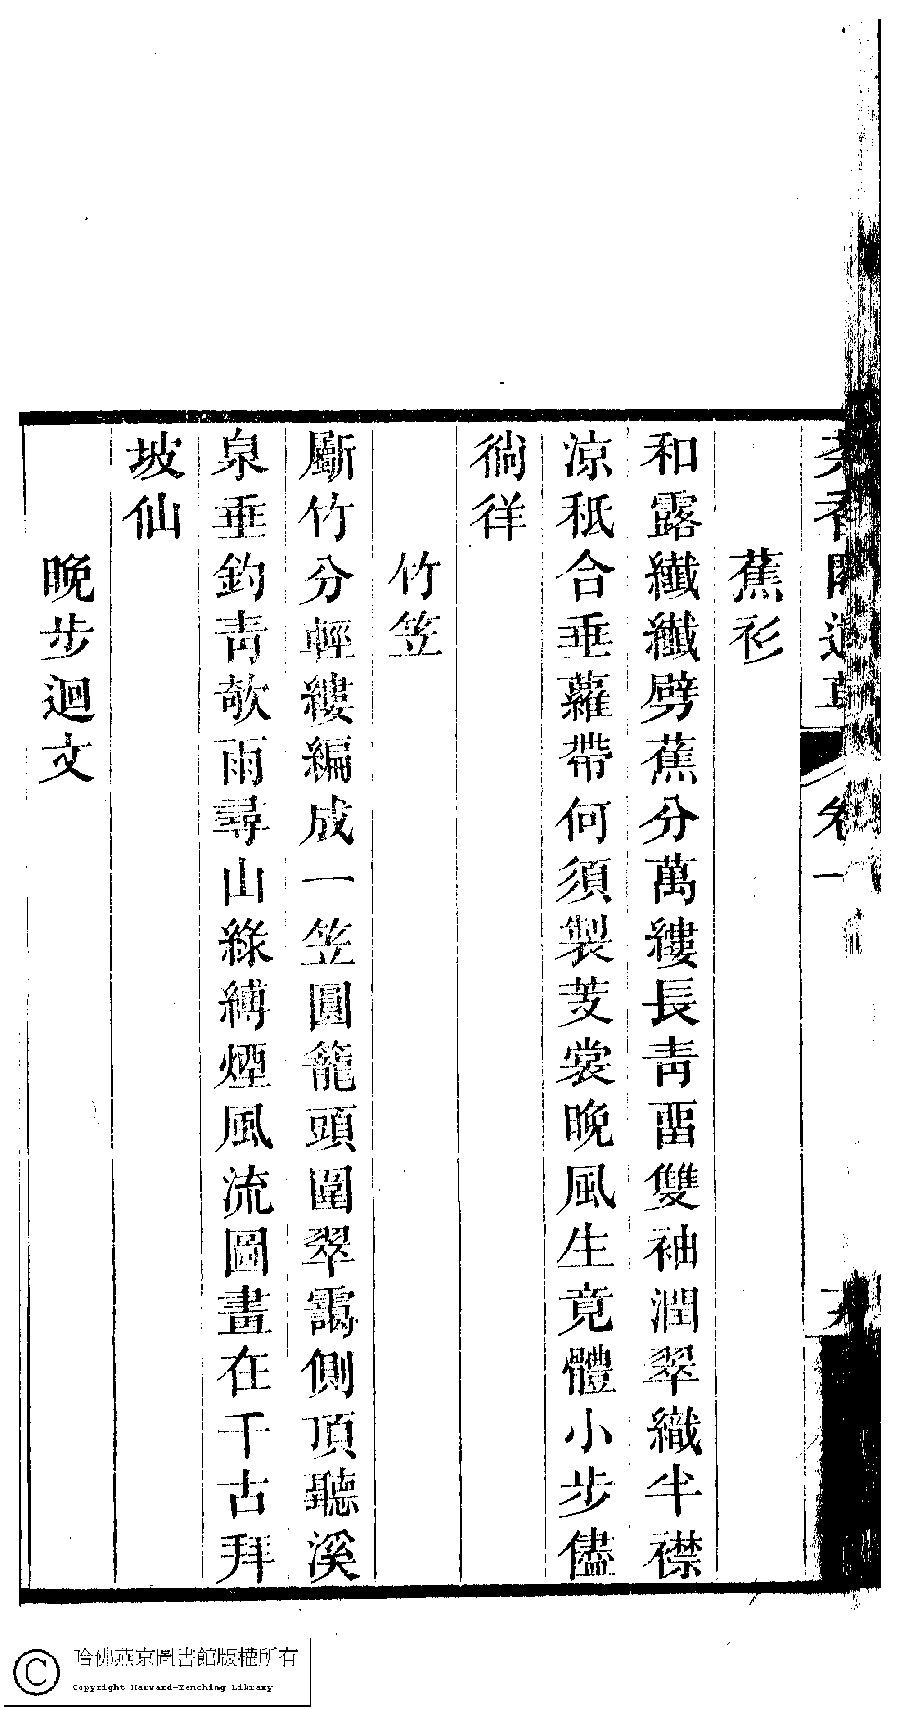 茶香閣遺草 卷一
蕉衫
和露纖纖劈蕉分萬縷長青畱雙袖潤翠織半襟
涼秪合垂蘿帶何須製芰裳晚風生竟體小步儘
徜徉
竹笠
斸竹分輕縷編成一笠圓籠頭圍翠靄側頂聽溪
泉垂釣青欹雨尋山綠縛煙風流圖畫在千古拜
坡仙
晚步迴文
哈佛燕京圖書館版權所有
Copyright Harvard-Yenching Library